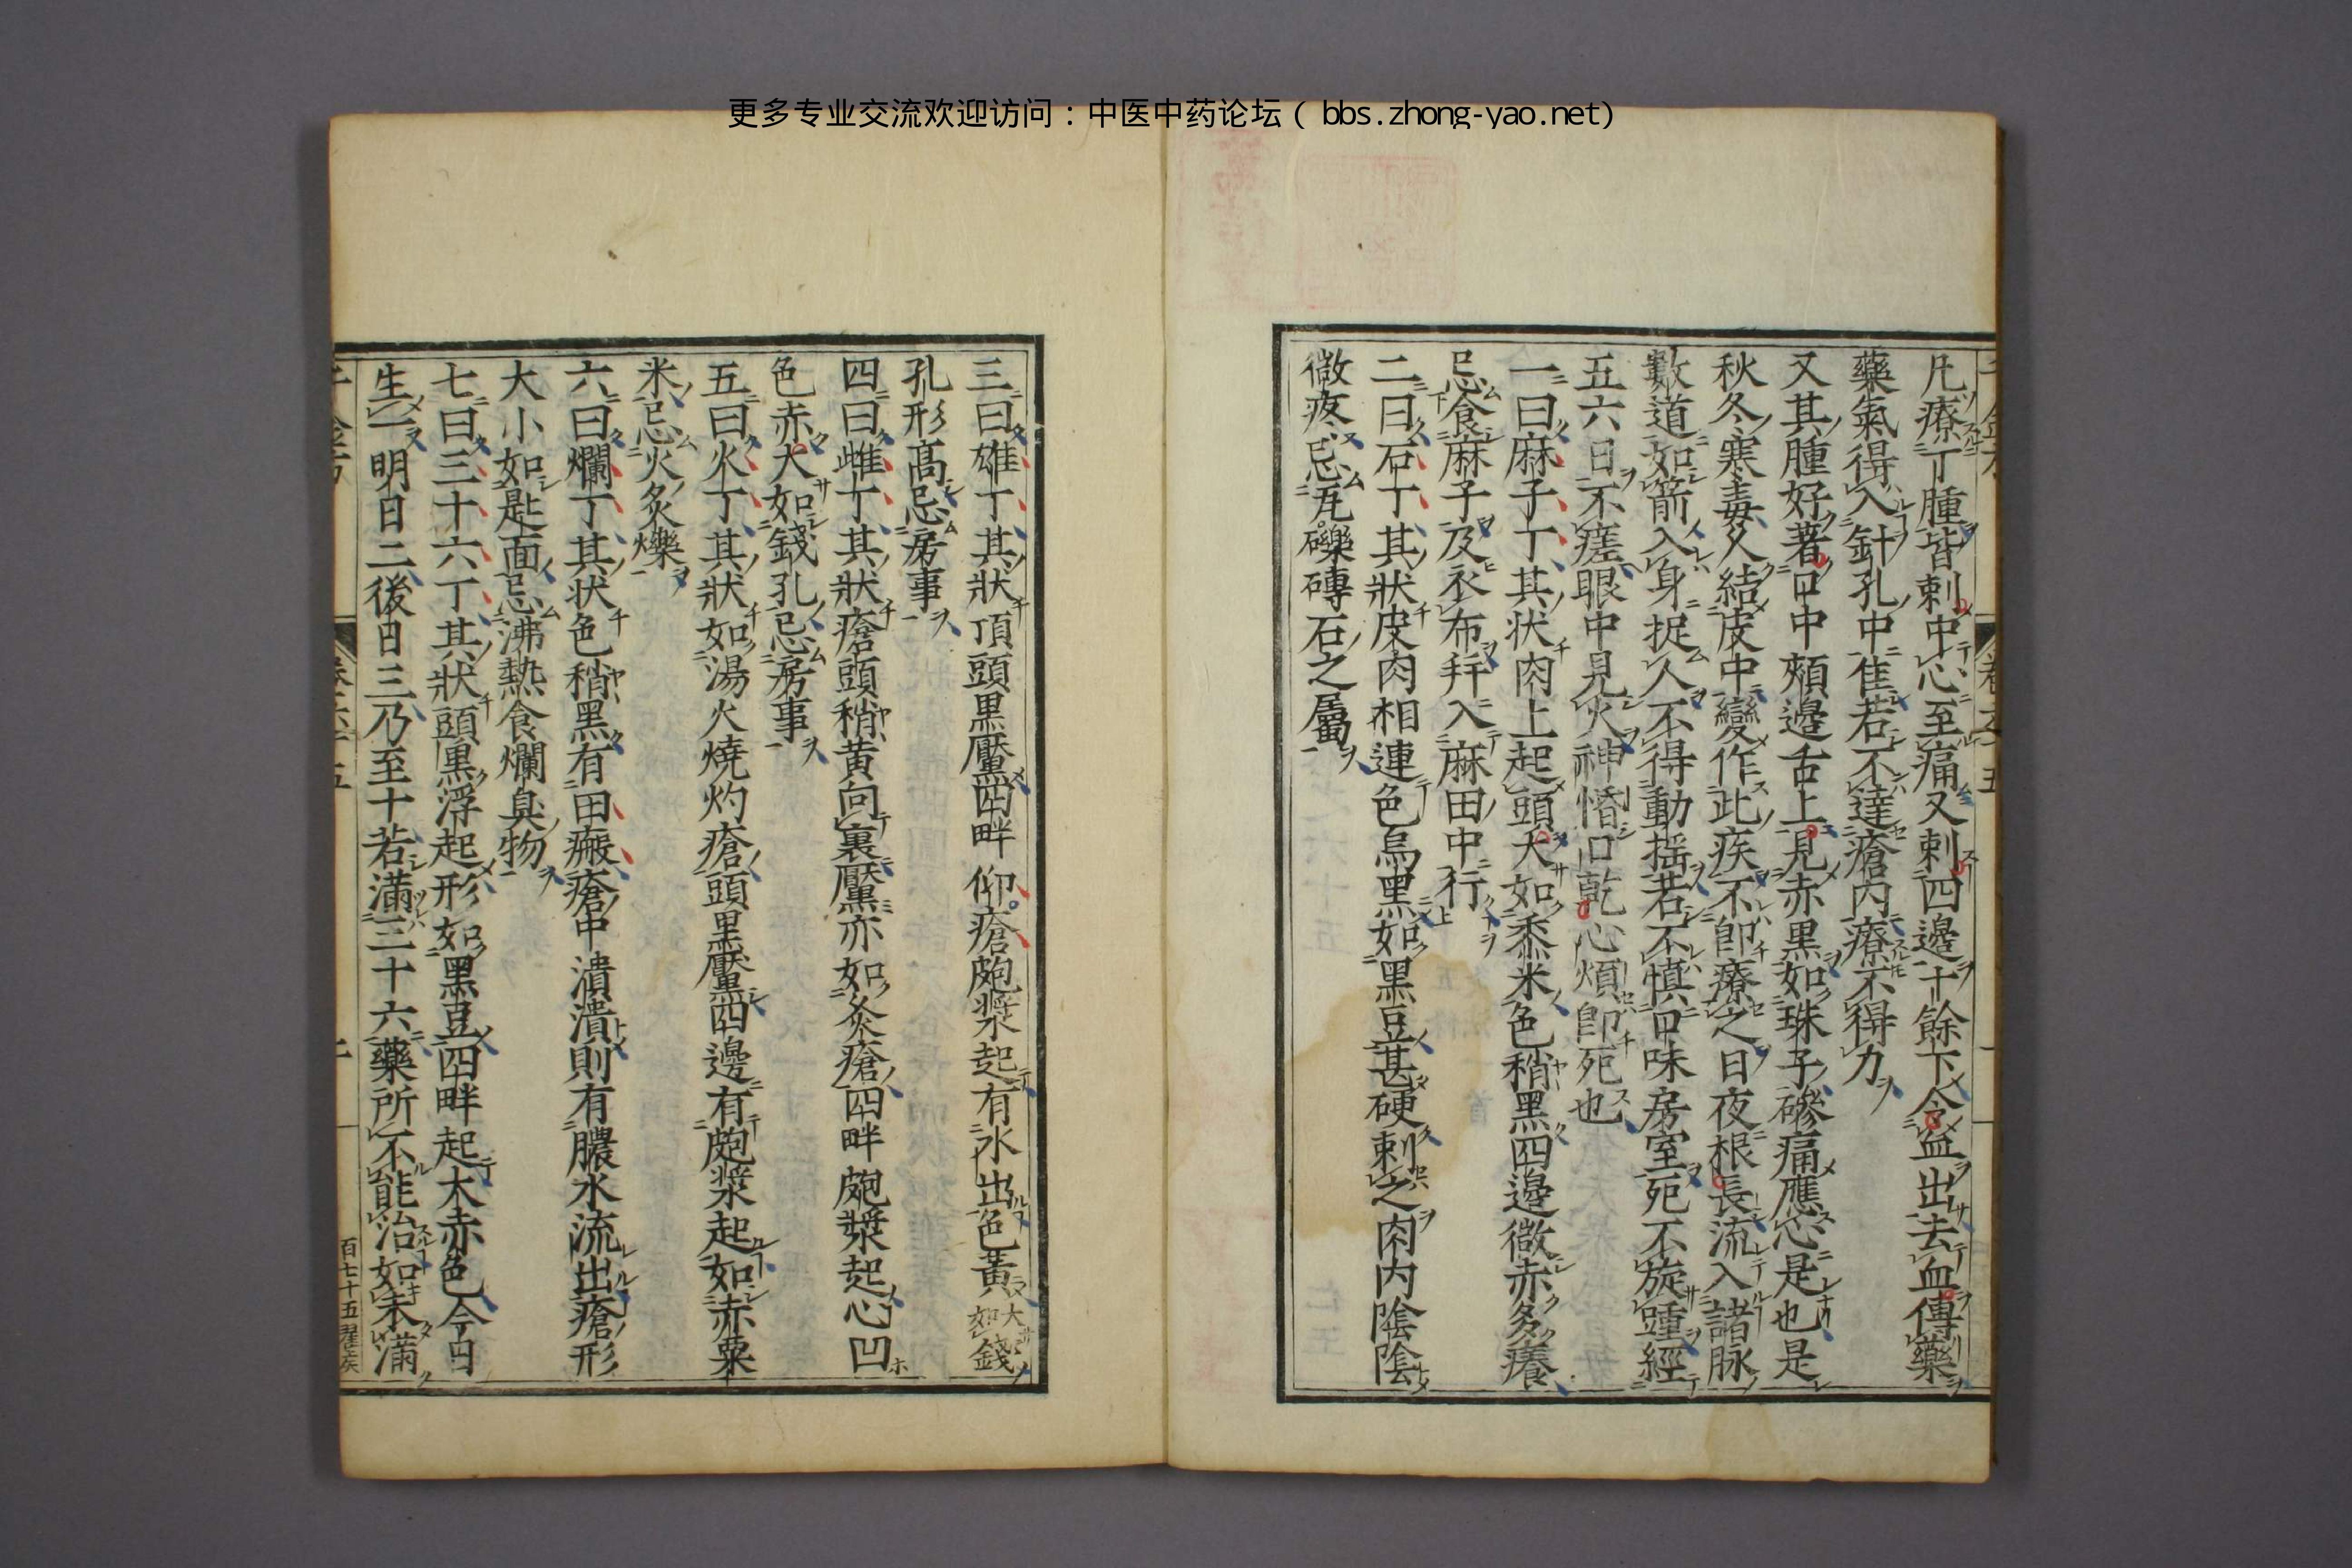 更多专业交流欢迎访问：中医中药论坛（bbs.zhong-yao.net）
凡療丁腫皆刺中心至痛又刺四邊十餘下令血出去血傅藥
藥氣得入針孔中佳若不達瘡內療不得力
又其腫好著口中頰邊舌上見赤黑如珠子磣痛應心是也是
秋冬寒毒久結皮中變作此疾不卽療之日夜根長流入諸脉
數道如箭入身捉人不得動揺若不慎口味房室死不旋踵經
五六日不瘥眼中見火神惛口乾心煩卽死也
一曰麻子丁其狀肉上起頭大如黍米色稍黑四邊微赤多癢
忌食麻子及衣布幷入麻田中行
二曰石丁其狀皮肉相連色烏黑如黑豆甚硬刺之肉內陰陰
微疼忌瓦礫磚石之屬
三曰雄丁其狀頂頭黑黶四畔仰瘡皰漿起有水出色黃大如錢
孔形高忌房事
四曰雌丁其狀瘡頭稍黃向裏黶亦如灸瘡四畔皰漿起心凹
色赤大如錢孔忌房事
五曰火丁其狀如湯火燒灼瘡頭黑黶四邊有皰漿起如赤粟
米忌火灸爍
六曰爛丁其狀色稍黑有田瘢瘡中潰潰則有膿水流出瘡形
大小如匙面忌沸熱食爛臭物
七曰三十六丁其狀頭黑浮起形如黑豆四畔起大赤色今日
生一明日二後日三乃至十若滿三十六藥所不能治如未滿
百七十五